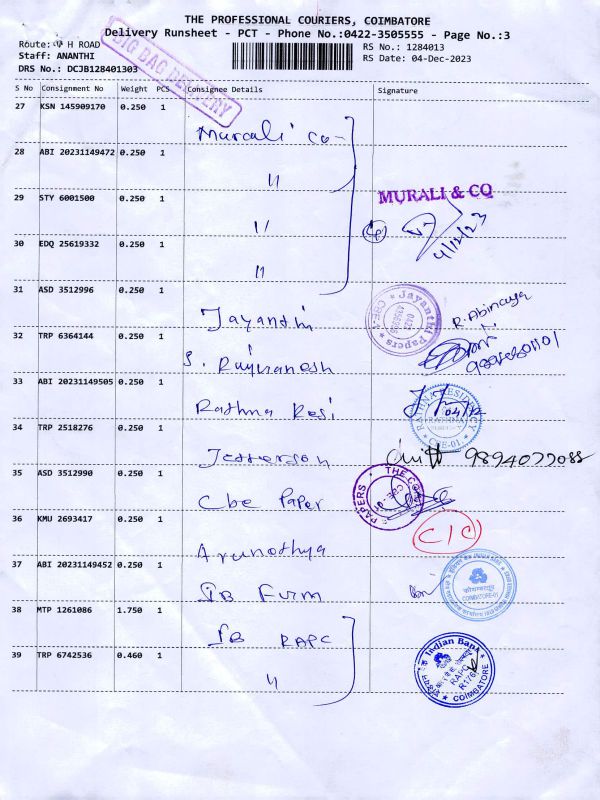 THE PROFESSIONAL COURIERS, COIMBATORE
Delivery Runsheet - PCT - Phone No.:0422-3505555 - Page No.:3
Route: H ROAD
RS No.: 1284013
Staff: ANANTHI
RS Date: 04-Dec-2023
DRS No.: DCJB128401303
BIG BAG DELIVERY
S No Consignment No Weight PCS Consignee Details Signature
27 KSN 145909170 0.250 1
Murali Co-
28 ABI 20231149472 0.250 1
"
29 STY 6001500 0.250 1
MURALI & CO
"
4/12/23
30 EDQ 25619332 0.250 1
"
31 ASD 3512996 0.250 1
Jayanthi
Jayanthi Papers
0422
CBE-1
R. Abinaya
32 TRP 6364144 0.250 1
33 ABI 20231149505 0.250 1
Rathna Resi
RATHNA RESIDENCY
RATHNA
CBE-01
34 TRP 2518276 0.250 1
Jefferson
9894077088
35 ASD 3512990 0.250 1
Cbe Paper
PAPERS
36 KMU 2693417 0.250 1
C/C
Arunothya
37 ABI 20231149452 0.250 1
IB Furm
COIMBATORE-01
38 MTP 1261086 1.750 1
IB RAPC
Indian Bank
RAPC
COIMBATORE
39 TRP 6742536 0.460 1
"